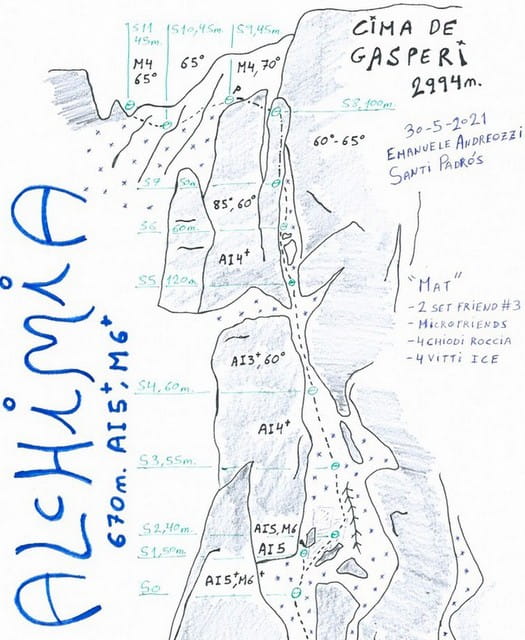 CIMA DE
GASPERI
2994m.
30-5-2021
EMANUELE ANDREOZZI
SANTI PADRÓS
S11
45m.
S10, 45m.
S9, 45m.
M4
65°
65°
M4, 70°
P
S8, 100m.
60°-65°
S7 50m
85°, 60°
S6 60m.
AI4+
S5 120m.
"MAT"
- 2 SET FRIEND #3
- MICROFRIENDS
- 4 CHIODI ROCCIA
- 4 VITTI ICE
AI3+, 60°
S4, 60m.
AI4+
S3, 55m.
S2, 40m.
AI5, M6
S1, 50m.
AI5
S0
AI5+, M6+
ALCHIMIA
670m. AI5+, M6+